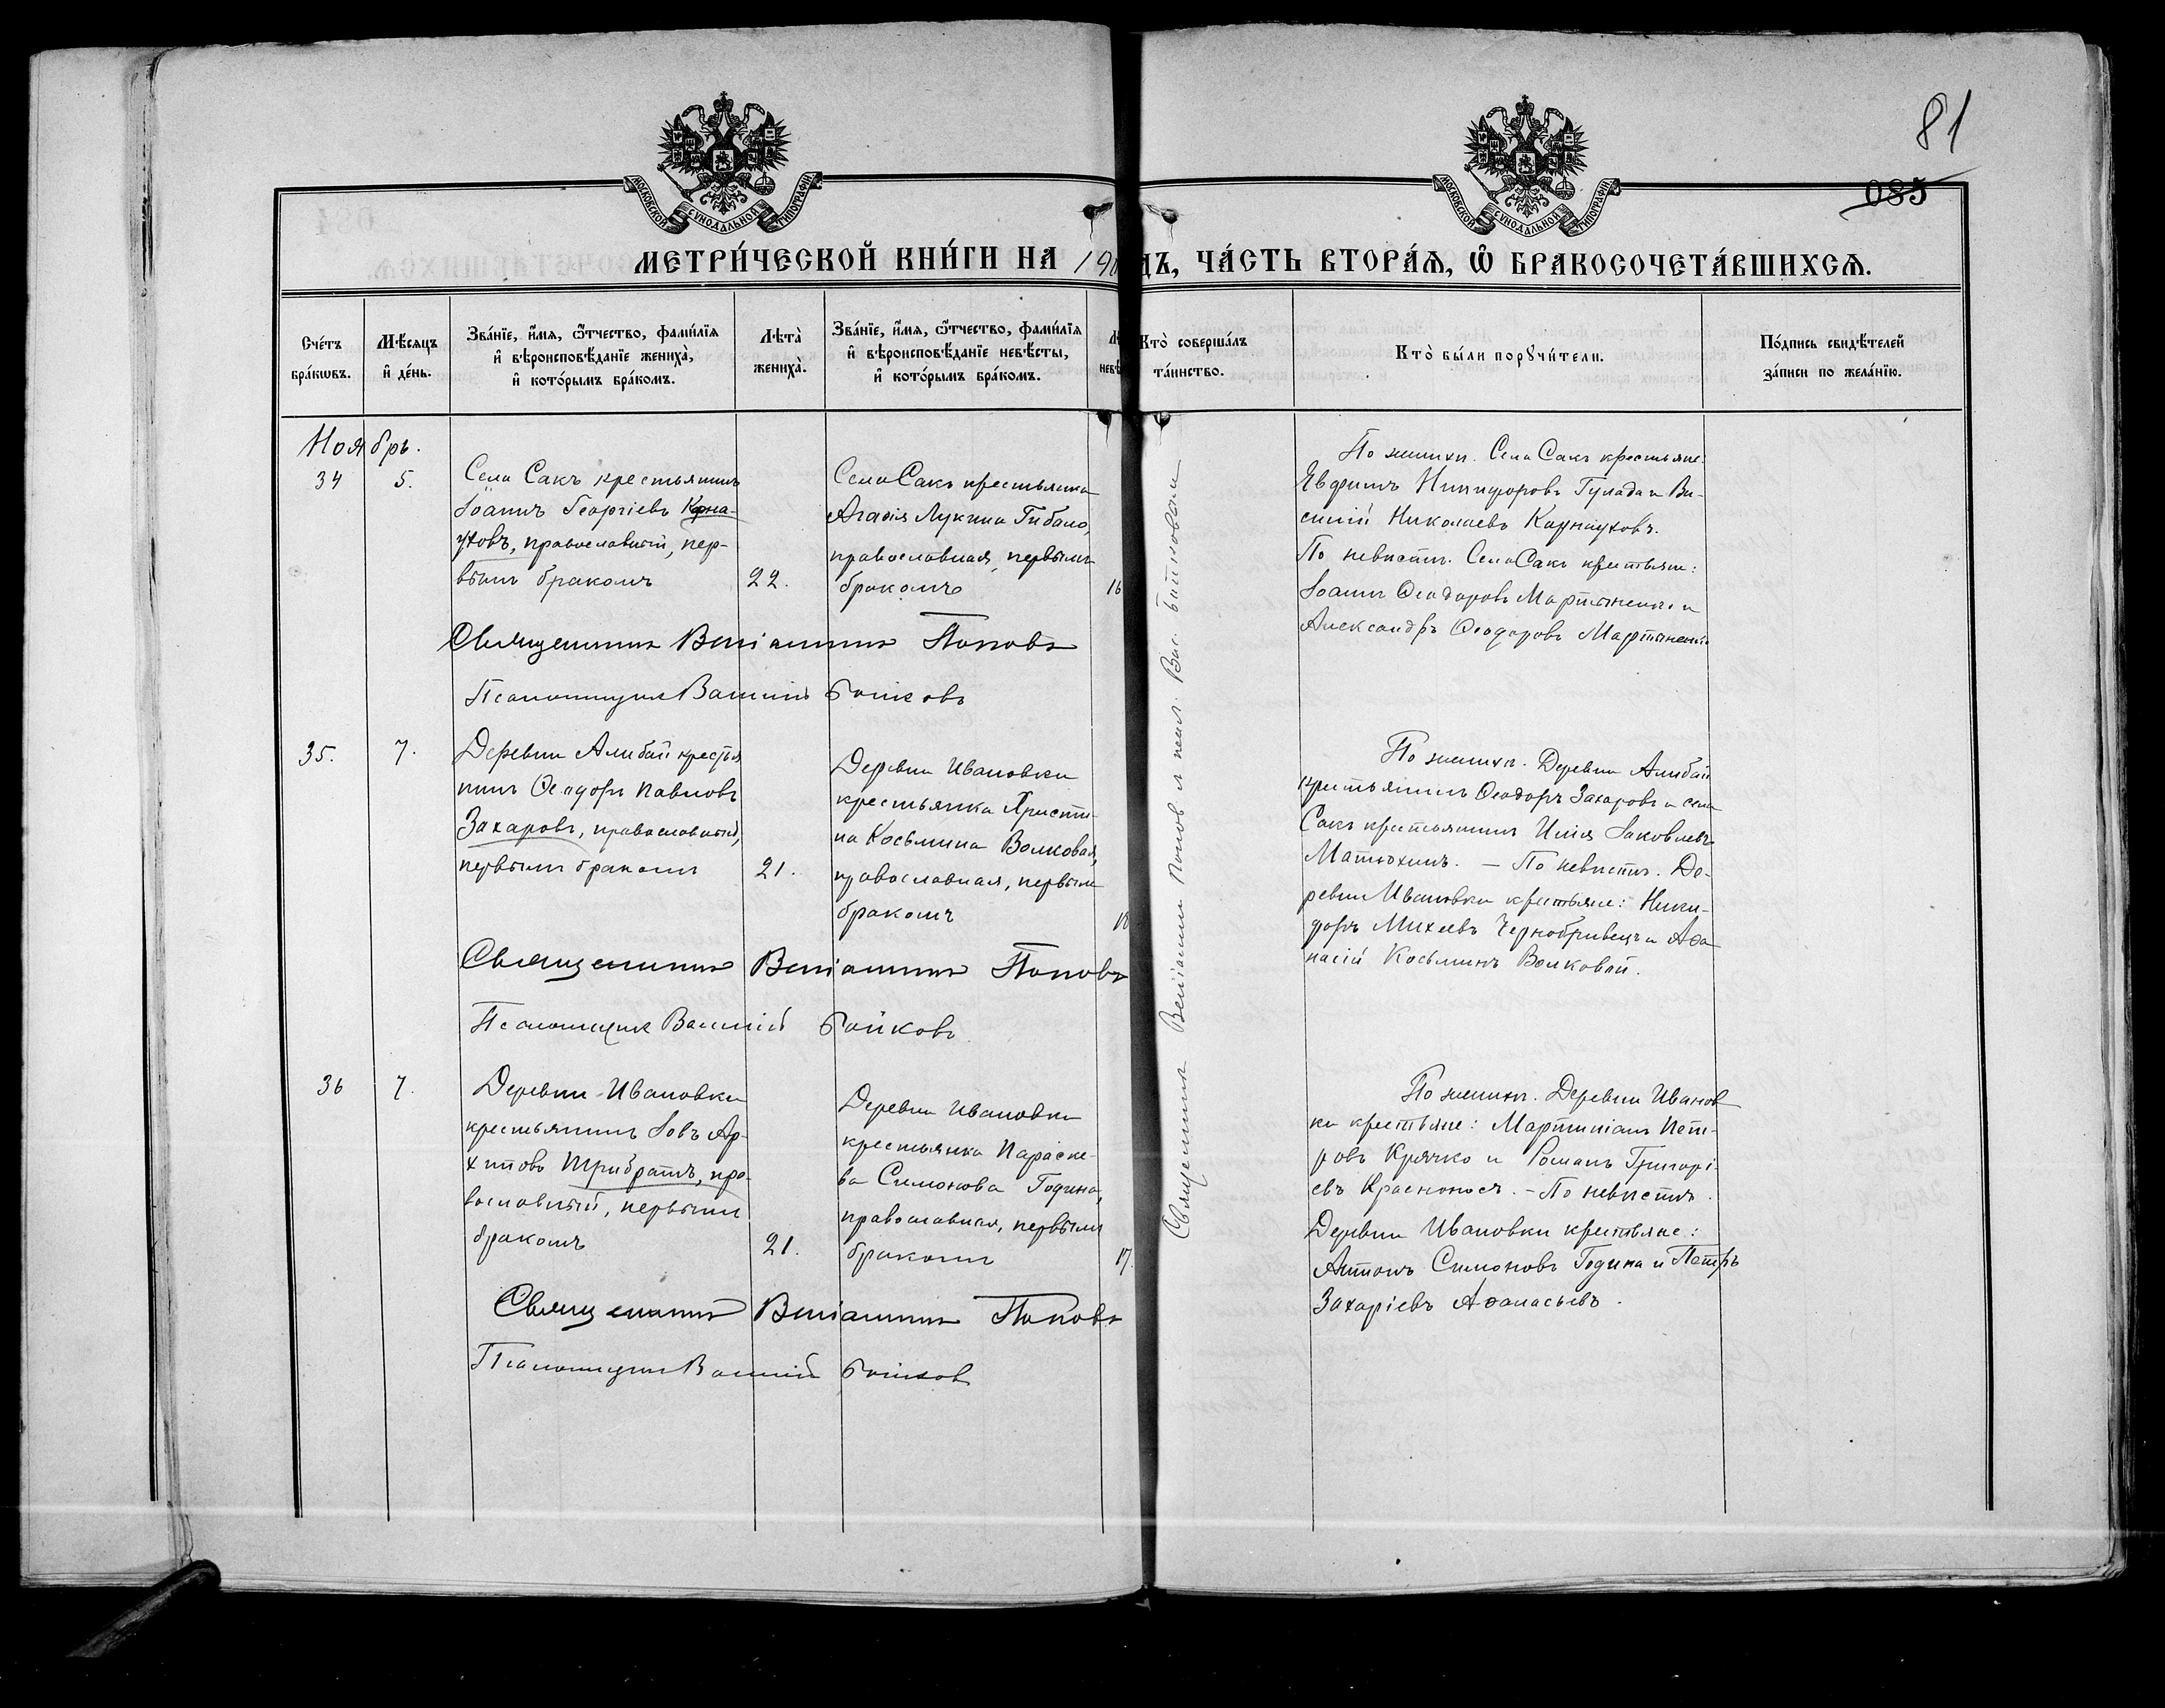 81
085
МОСКОВСКОЙ СѴНОДАЛЬНОЙ ТИПОГРАФІИ
МОСКОВСКОЙ СѴНОДАЛЬНОЙ ТИПОГРАФІИ
МЕТРИ́ЧЕСКОЙ КНИ́ГИ НА 190
ДЪ, ЧА́СТЬ ВТОРА́Ѧ, Ѽ БРАКОСОЧЕТА́ВШИХСѦ.
Сче́тъ
бра́кѡвъ.
Мѣ́сяцъ
и҆ де́нь.
Зва́нїе, и҆́мя, ѻ҆́тчество, фами́лїя
и҆ вѣроисповѣ́данїе жениха̀,
и҆ кото́рымъ бра́комъ.
Лѣта̀
жениха̀.
Зва́нїе, и҆́мя, ѻ҆́тчество, фами́лїя
и҆ вѣроисповѣ́данїе невѣ́сты,
и҆ кото́рымъ бра́комъ.
Кто̀ соверша́лъ
та́инство.
Кто̀ бы́ли порꙋчи́тели.
По́дпись свидѣ́телей
за́писи по жела́нїю.
Ноябрь.
34
5.
Села Сакъ крестьянинъ
Іоаннъ Георгіевъ Карна-
уховъ, православный, пер-
вымъ бракомъ
22.
Села Сакъ крестьянка
Агаѳія Лукина Гибало,
православная, первымъ
бракомъ
16
По женихѣ. Села Сакъ крестьяне:
Евфимъ Никифоровъ Гулада и Ва-
силій Николаевъ Карнауховъ.
По невѣстѣ. Села Сакъ крестьяне:
Іоаннъ Ѳеодоровъ Мартыненко и
Александръ Ѳеодоровъ Мартыненко
Священникъ Веніаминъ Поповъ
Псаломщикъ Василій Бойковъ
35.
7.
Деревни Алибай крестья
нинъ Ѳеодоръ Павловъ
Захаровъ, православный,
первымъ бракомъ
21.
Деревни Ивановки
крестьянка Христи-
на Косьмина Волковая,
православная, первымъ
бракомъ
18
По женихѣ. Деревни Алибай
крестьянинъ Ѳеодоръ Захаровъ и села
Сакъ крестьянинъ Илія Іаковлевъ
Матюхинъ. — По невѣстѣ. Де-
ревни Ивановки крестьяне: Ники-
форъ Михеевъ Чернобривецъ и Аѳа
насій Косьминъ Волковой.
Священникъ Веніаминъ Поповъ
Псаломщикъ Василій Бойковъ
36
7.
Деревни Ивановки
крестьянинъ Іовъ Ар-
хиповъ Трибратъ, пра-
вославный, первымъ
бракомъ
21.
Деревни Ивановки
крестьянка Параске-
ва Симонова Година,
православная, первымъ
бракомъ
17.
По женихѣ. Деревни Иванов
ки крестьяне: Мартиніанъ Пет-
ровъ Крячко и Романъ Григорі-
евъ Красноносъ. — По невѣстѣ.
Деревни Ивановки крестьяне:
Антонъ Симоновъ Година и Петръ
Захаріевъ Аѳанасьевъ.
Священникъ Веніаминъ Поповъ
Псаломщикъ Василій Бойковъ
Священникъ Веніаминъ Попов и псал. Вас. Байковым